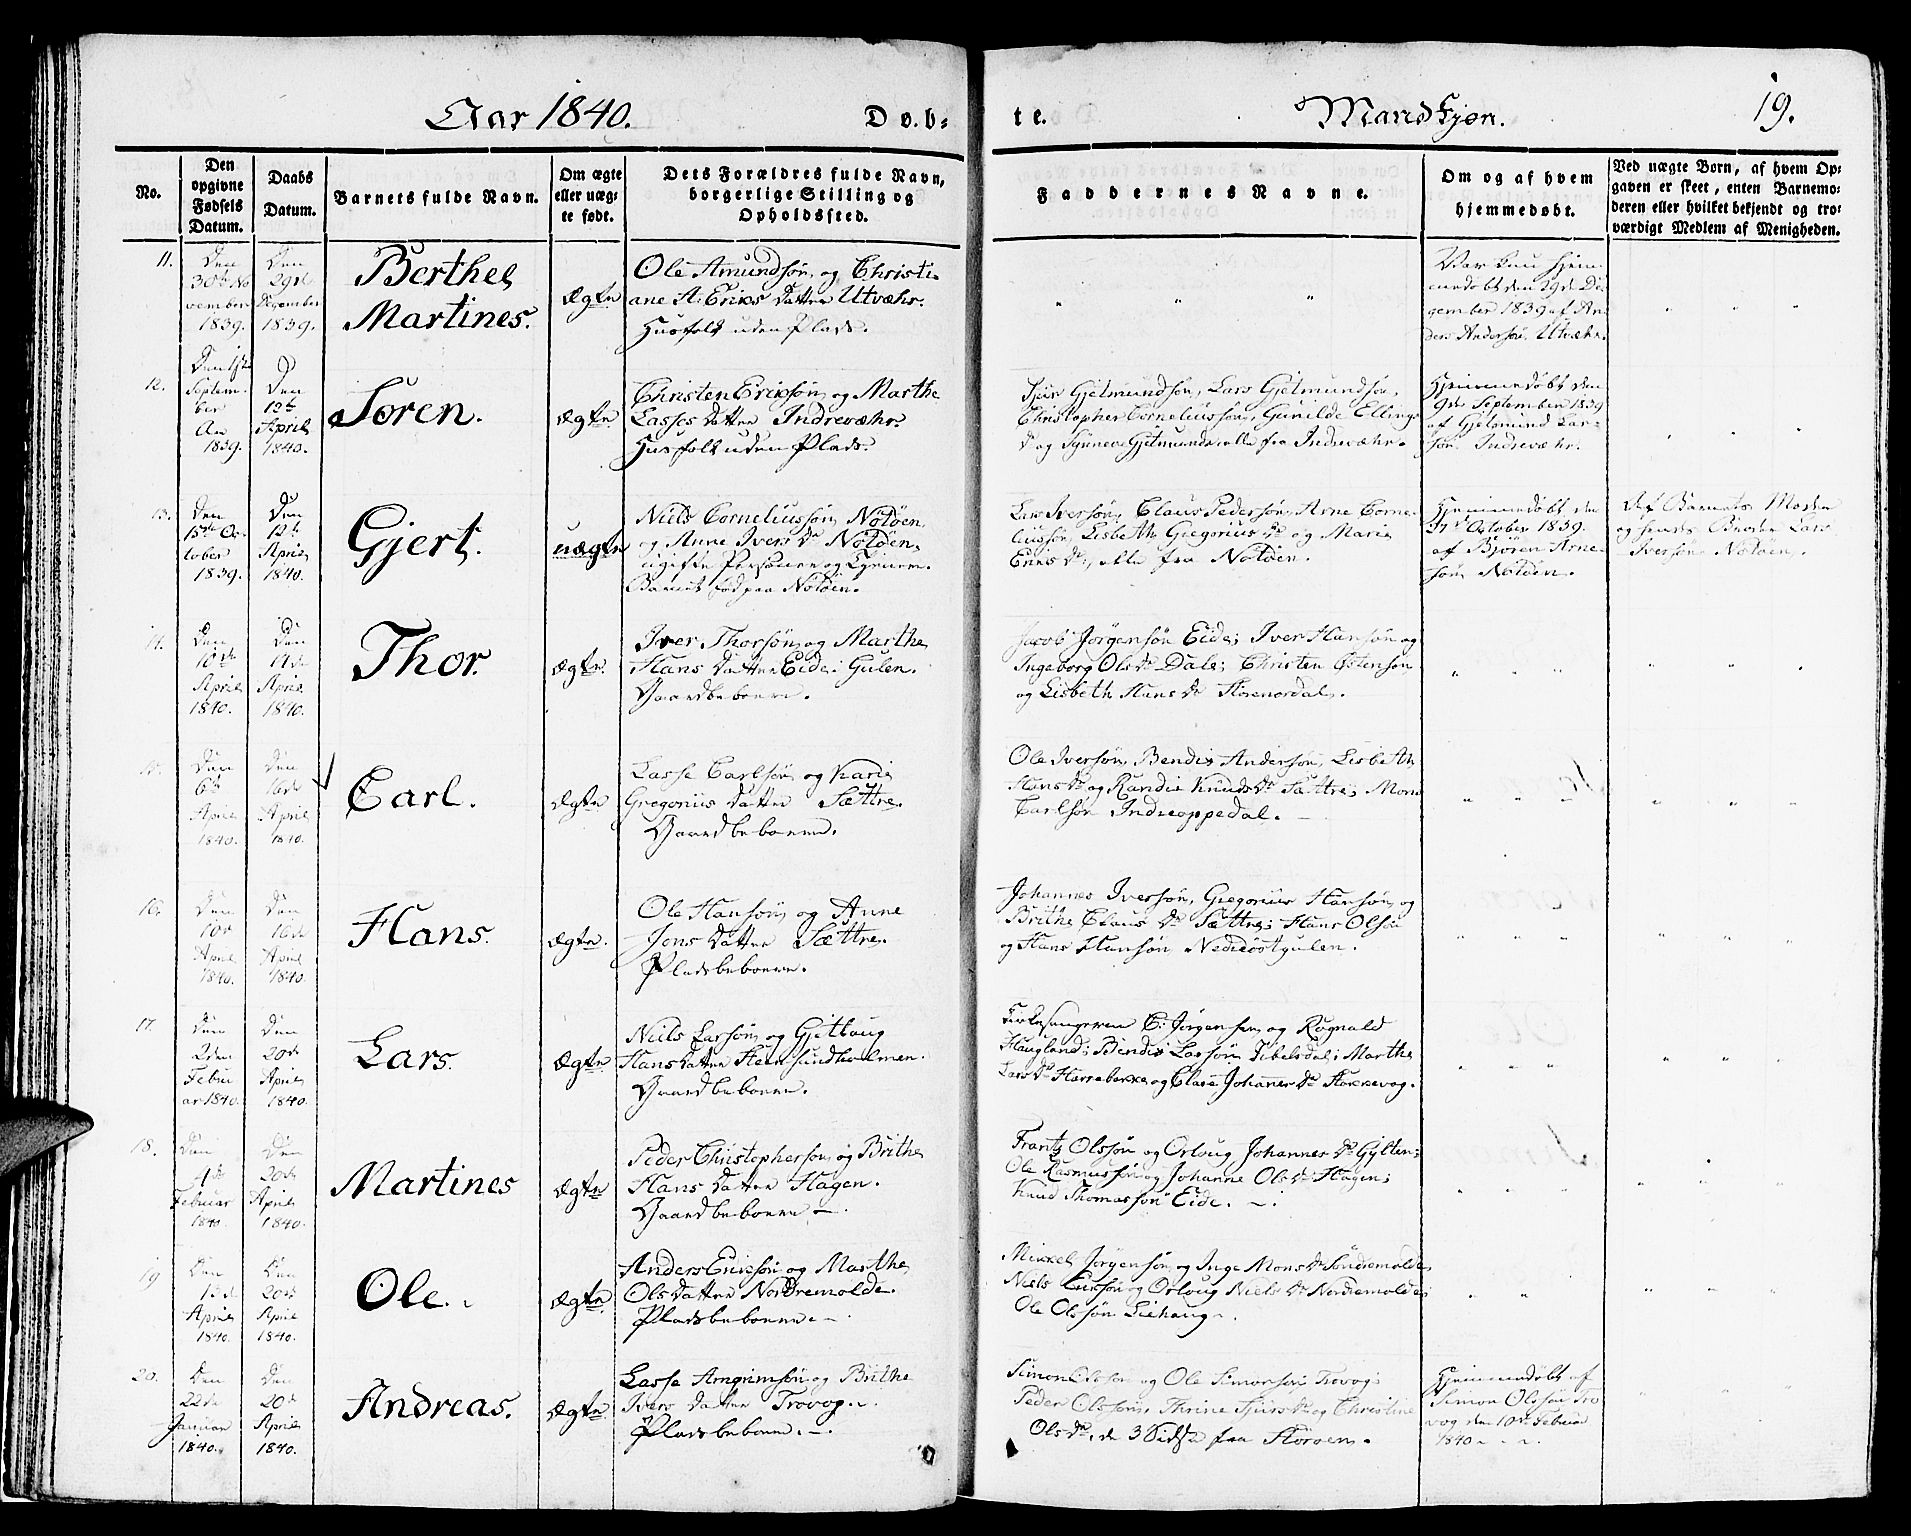 Aar 1840.
Døb-
te.
Mandkjøn.
19.
No.
Den opgivne Fødsels Datum.
Daabs Datum.
Barnets fulde Navn.
Om ægte eller uægte født.
Dets Forældres fulde Navn, borgerlige Stilling og Opholdssted.
Faddernes Navne.
Om og af hvem hjemmedøbt.
Ved uægte Børn, af hvem Opgaven er skeet, enten Barnemoderen eller hvilket bekjendt og troværdigt Medlem af Menigheden.
11.
Den
30te No
vember
1839.
Den
29de
December
1839.
Berthel
Martines.
Ægte
Ole Amundsøn og Christi-
ane A: Eriks Datter Utvæhr.
Huusfolk uden Plads.
den 29de De-
cember 1839 af An-
ders Andersøn, Utvæhr.
12.
Septem-
ber
1839.
Den
12te
April
1840.
Søren.
Ægte
Christen Eriksøn og Marthe
Lasses Datter Indrevæhr.
Husfolk uden Plads.
Lars Gjelmundsøn,
Christopher Corneliussøn, Gunilde Ellings
Dr og Synneve Gjelmunds alle fra Indrevæhr.
Hjemmedøbt den
9de September 1839
af Gjelmund Lar-
søn Indrevæhr.
13.
Den
15de Oc-
tober
1839.
Den
12te
April
1840.
Gjert.
uægte
Niels Corneliussøn Notøen
og Anne Ivers Dr Notøen,
ugifte Personer og
Barnet fød paa Notøen.
Lars Iversøn, Claus Pedersøn, Arne Corne-
liussøn, Lisbeth Gregorius Dr og Marie
Eriks Dr, alle fra Notøen.
Hjemmedøbt den
October 1839.
af Bjøren Arne-
søn Notøen.
Af Barnets Moder
og hendes Broder Lars
Iversøn Notøen.
14.
Den
10de
April
1840.
Den
14de
April
1840.
Thor.
Ægte.
Iver Thorsøn og Marthe
Hans Datter Eide i Gulen.
Gaardbeboere.
Jacob Jørgensøn Eide; Iver Hansøn og
Ingeborg Ols Dr Dale; Christen Østensøn
og Lisbeth Hans Dr
15.
Den
6te
April
1840.
Den
16de
April
1840.
Carl.
Ægte
Lasse Carlsøn og Kari
Gregorius Datter Sættre.
Gaardbeboere.
Ole Iversøn, Bendix Andersøn, Lisbeth
Hans Dr og Randi Knuds Dr Sættre; Mons
Carlsøn Indreoppedal.
16.
Den
10de
April
1840.
Den
16de
April
1840.
Hans.
Ægte.
Ole Hansøn og Anne
Jons Datter Sættre.
Pladsbeboere.
Johannes Iversøn, Gregorius Hansøn og
Brithe Claus Dr Sættre; Hans Olsøn
og Hans Hansøn Nedreøstgulen.
17.
Den
2den
Febru
ar 1840.
Den
20de
April
1840.
Lars.
Ægte
Niels Larsøn og Gjetlaug
Hans Datter Steensundholmen.
Gaardbeboere.
Kirkesangeren C: Jørgensen og Rognald
Haugland; Bendix Larsøn Marthe
Lars Dr og Johannes Dr
18.
Den
4de
Februar
1840.
Den
20de
April
1840.
Martines
Ægte
Peder Christophersøn og Brithe
Hans Datter Hagen.
Gaardbeboere.
Frantz Olssøn og Orloug Johannes Dr Gylten;
Ole Rasmussøn og Johanne Ols Dr Hagen;
Knud Thomassøn Eide.
19
Den
13de
April
1840.
Den
20de
April
1840.
Ole.
Ægte
Anders Ericsøn og Marthe
Ols Datter Nordremolde.
Pladsbeboere.
Mikkel Jørgensøn og Inge Mons Dr Søndremolde,
Niels Ericsøn og Orloug Niels Dr Nordremolde;
Ole Olssøn Liehaug.
20.
Den
22de
Januar
1840.
Den
20de
April
1840.
Andreas.
Ægte
Lasse Arngrimsøn og Brithe
Ivers Datter Trovog.
Pladsbeboere.
Simon Olssøn og Ole Simonsøn Trovog;
Peder Olssøn, Thrine Sjurs Dr og Christine
Ols Dr, de 3 Sidste fra
Hjemmedøbt af
Simon Olssøn Tro
vog den 10de Februar
1840